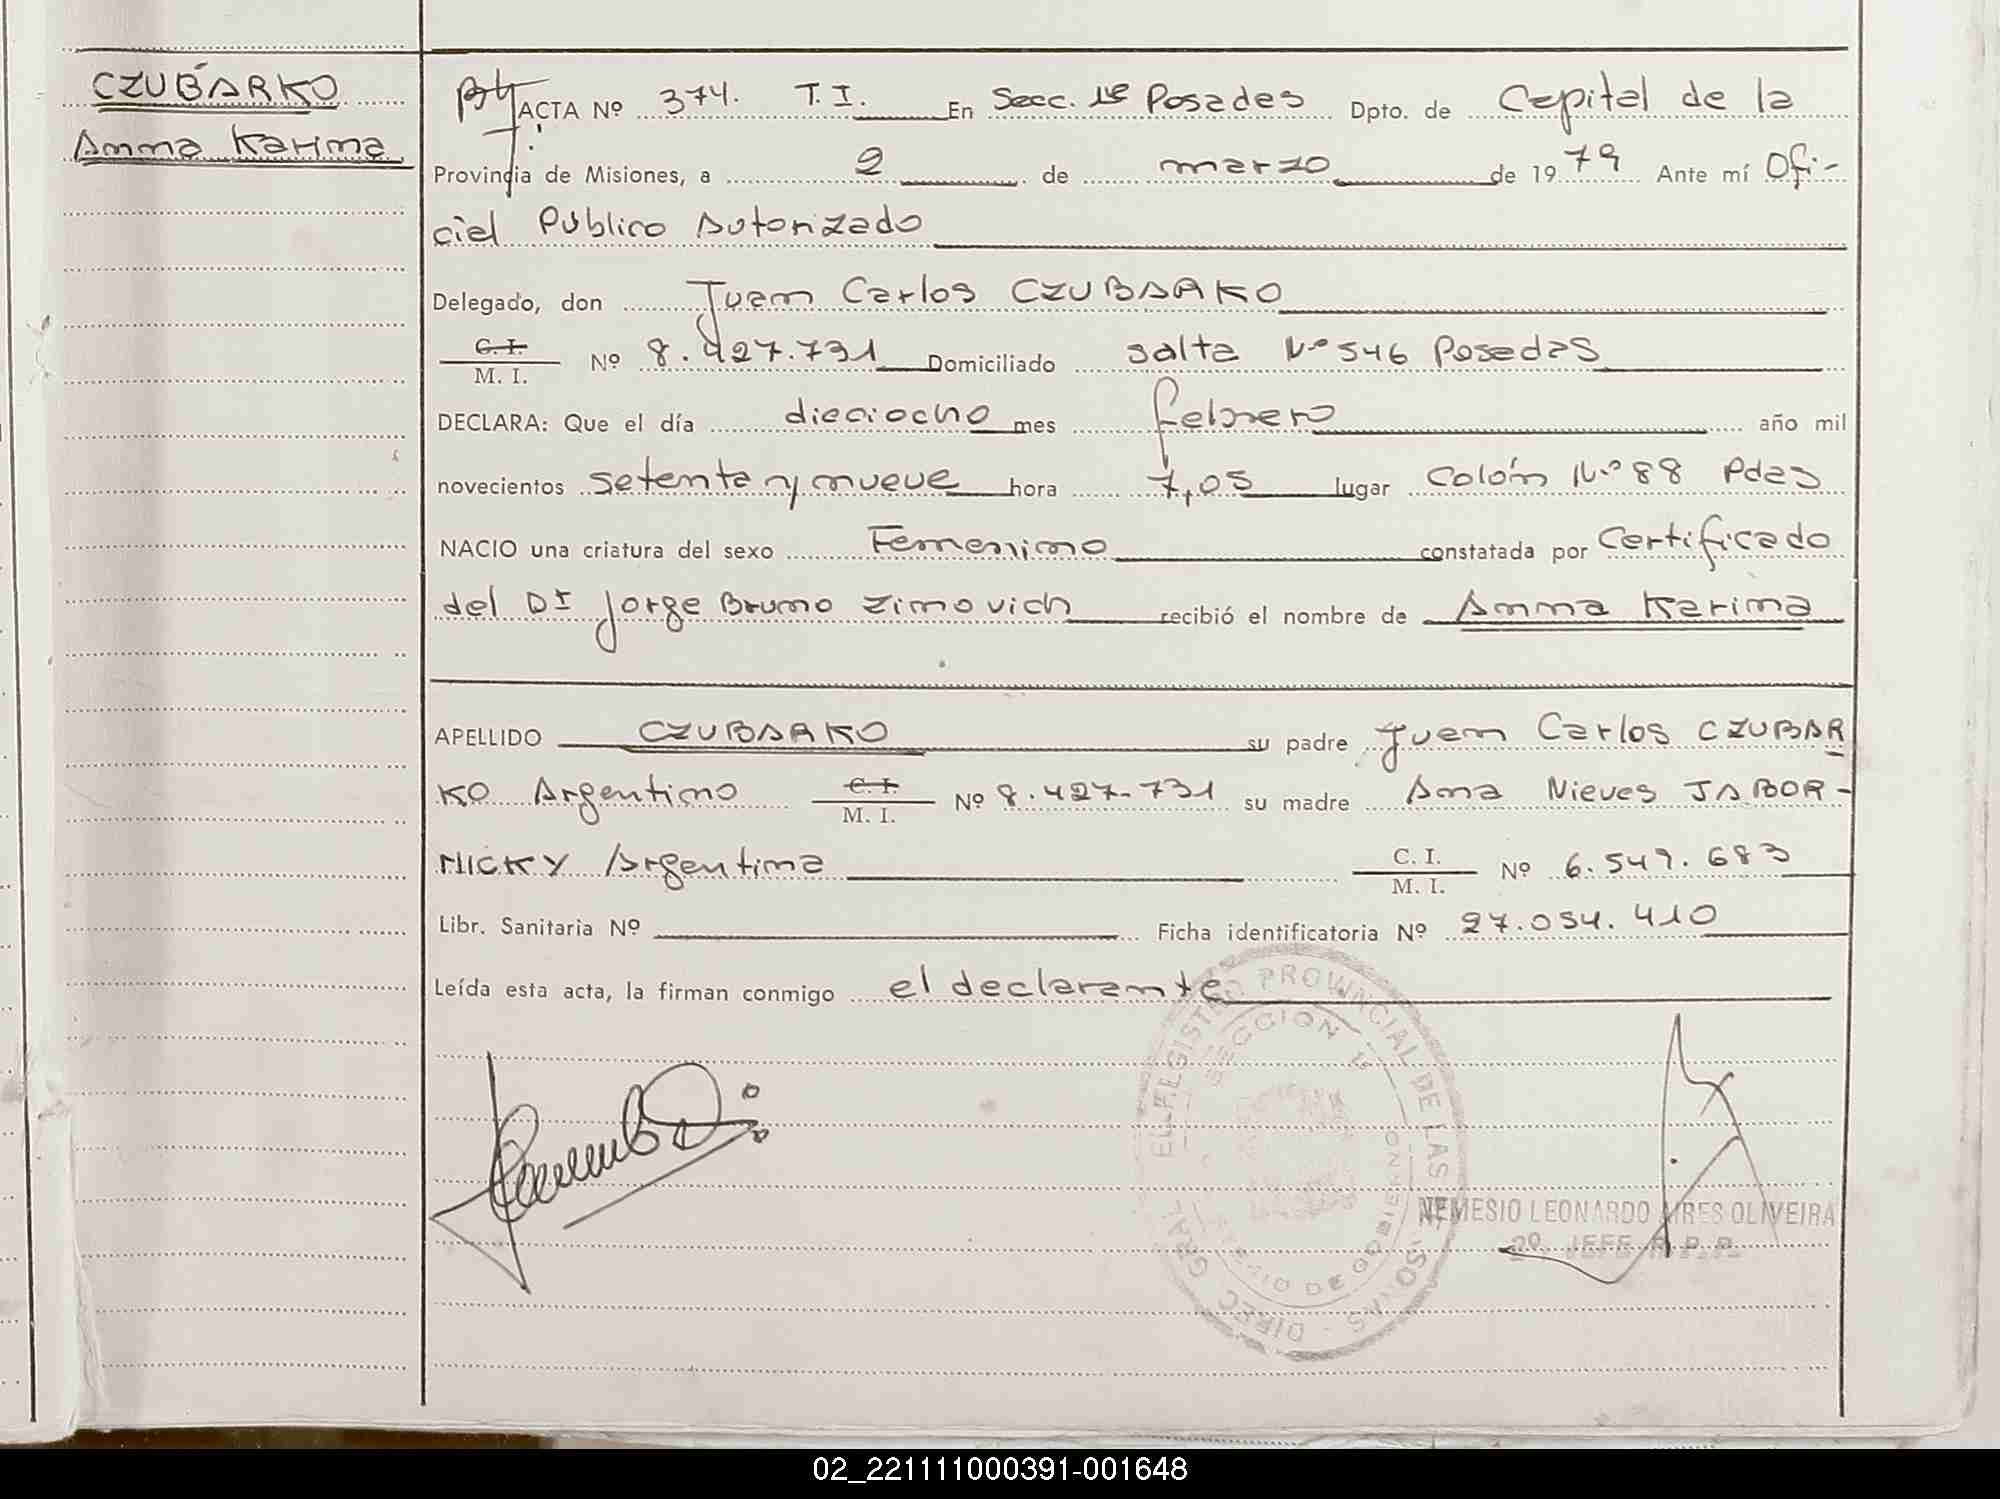 CZUBARKO
Anna Karina
ACTA Nº 374. T.I. En Secc. 1ª Posadas Dpto. de Capital de la
Provincia de Misiones, a 2 de marzo de 1979 Ante mí Ofi-
cial Publico Autorizado
Delegado, don Juan Carlos CZUBARKO
C. I. / M. I. Nº 8.427.731 Domiciliado Salta Nº 546 Posadas
DECLARA: Que el día dieciocho mes febrero año mil
novecientos setenta y nueve hora 7,05 lugar Colón Nº 88 Pdas
NACIO una criatura del sexo Femenino constatada por Certificado
del Dr Jorge Bruno Zimovich recibió el nombre de Anna Karina
APELLIDO CZUBARKO su padre Juan Carlos CZUBAR
KO Argentino C. I. / M. I. Nº 8.427.731 su madre Ana Nieves JABOR-
NICKY Argentina C. I. / M. I. Nº 6.549.683
Libr. Sanitaria Nº Ficha identificatoria Nº 27.054.410
Leída esta acta, la firman conmigo el declarante
DIREC GRAL EL REGISTRO PROVINCIAL DE LAS
SECCION 1ª
DE GOBIERNO
NEMESIO LEONARDO AIRES OLIVEIRA
2º JEFE R.P.P.
02_221111000391-001648